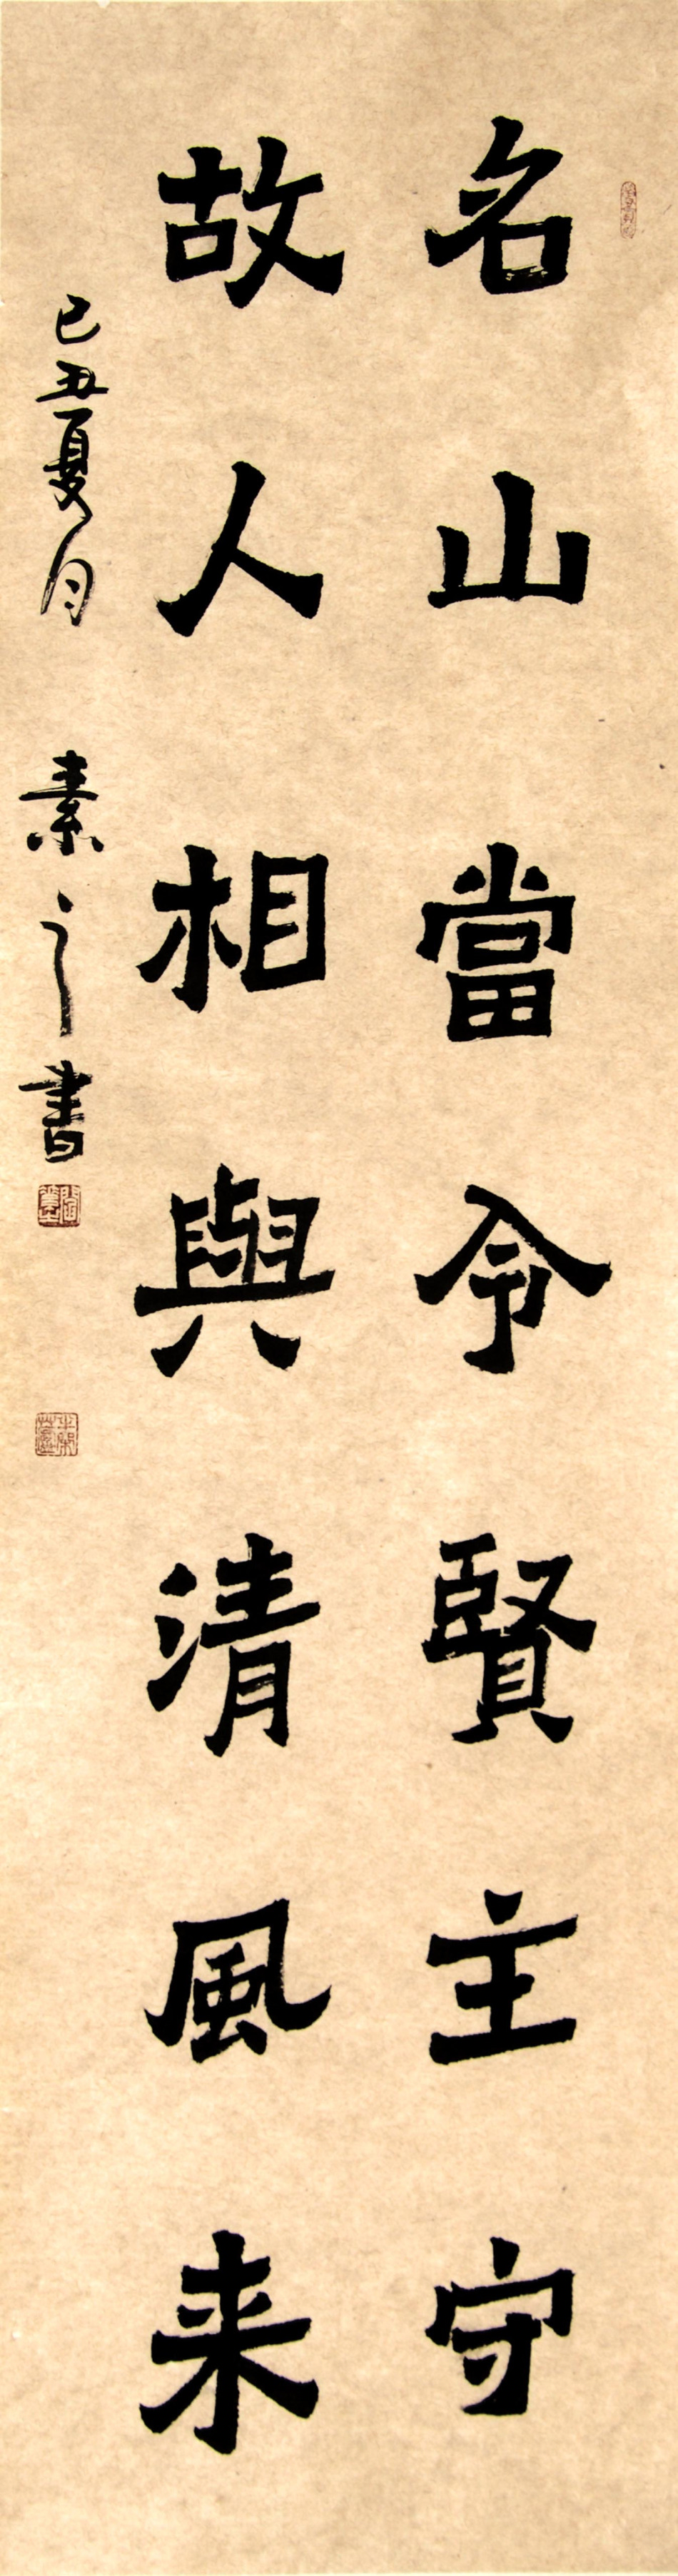 名山當令賢主守
故人相與清風来
己丑夏月 素之書